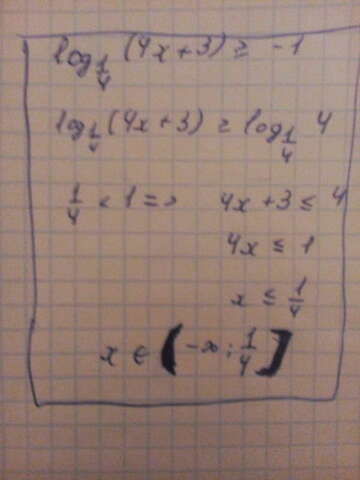 log_{1/4} (4x+3) ≥ -1
log_{1/4} (4x+3) ≥ log_{1/4} 4
1/4 < 1 => 4x+3 ≤ 4
4x ≤ 1
x ≤ 1/4
x ∈ (-∞; 1/4]